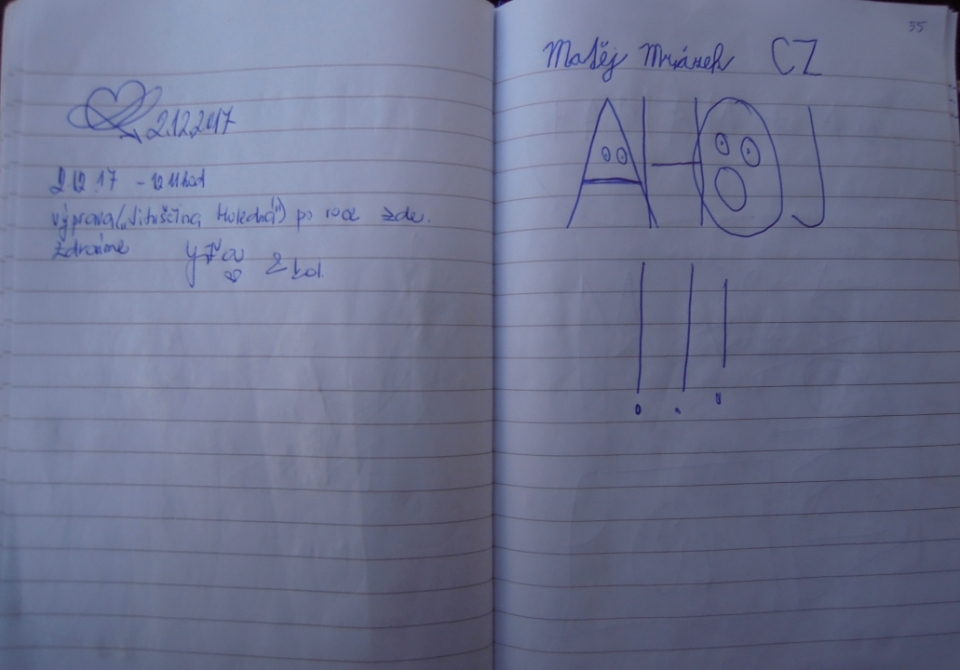 2.12.2017
2.12.17 - 12 11 hod
výprava po roce zde.
Zdravíme
2 kol
55
Matěj Mrázek CZ
AHOJ
!!!